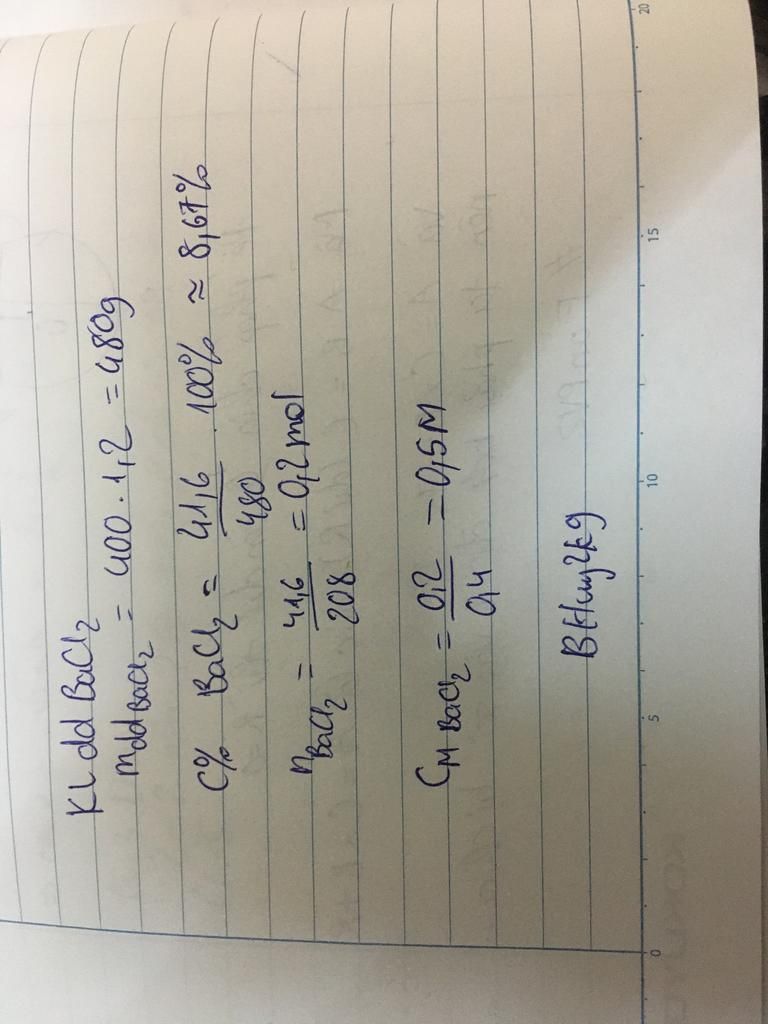 KL dd BaCl2
mddBaCl2 = 400 . 1,2 = 480g
C% BaCl2 = 41,6/480 . 100% ≈ 8,67%
nBaCl2 = 41,6/208 = 0,2 mol
CM BaCl2 = 0,2/0,4 = 0,5M
0 5 10 15 20